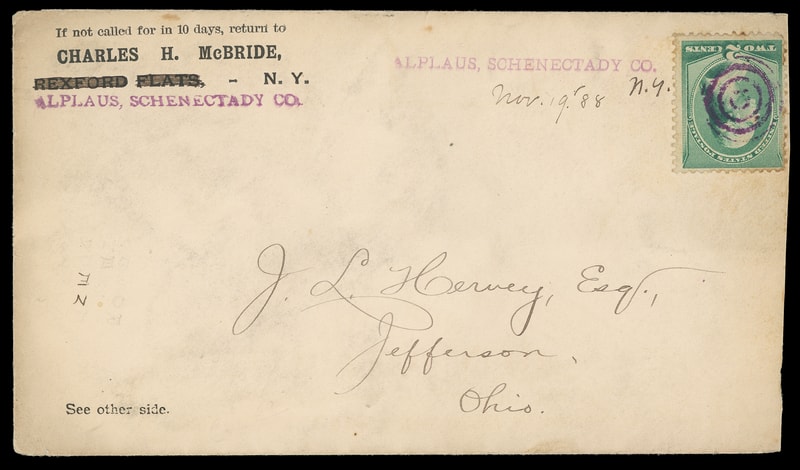 If not called for in 10 days, return to
CHARLES H. McBRIDE,
REXFORD FLATS, - N. Y.
ALPLAUS, SCHENECTADY CO.
ALPLAUS, SCHENECTADY CO.
N.Y.
Nov. 19, '88
TWO 2 CENTS
UNITED STATES POSTAGE
J. L. Hervey, Esq.,
Jefferson,
Ohio.
See other side.